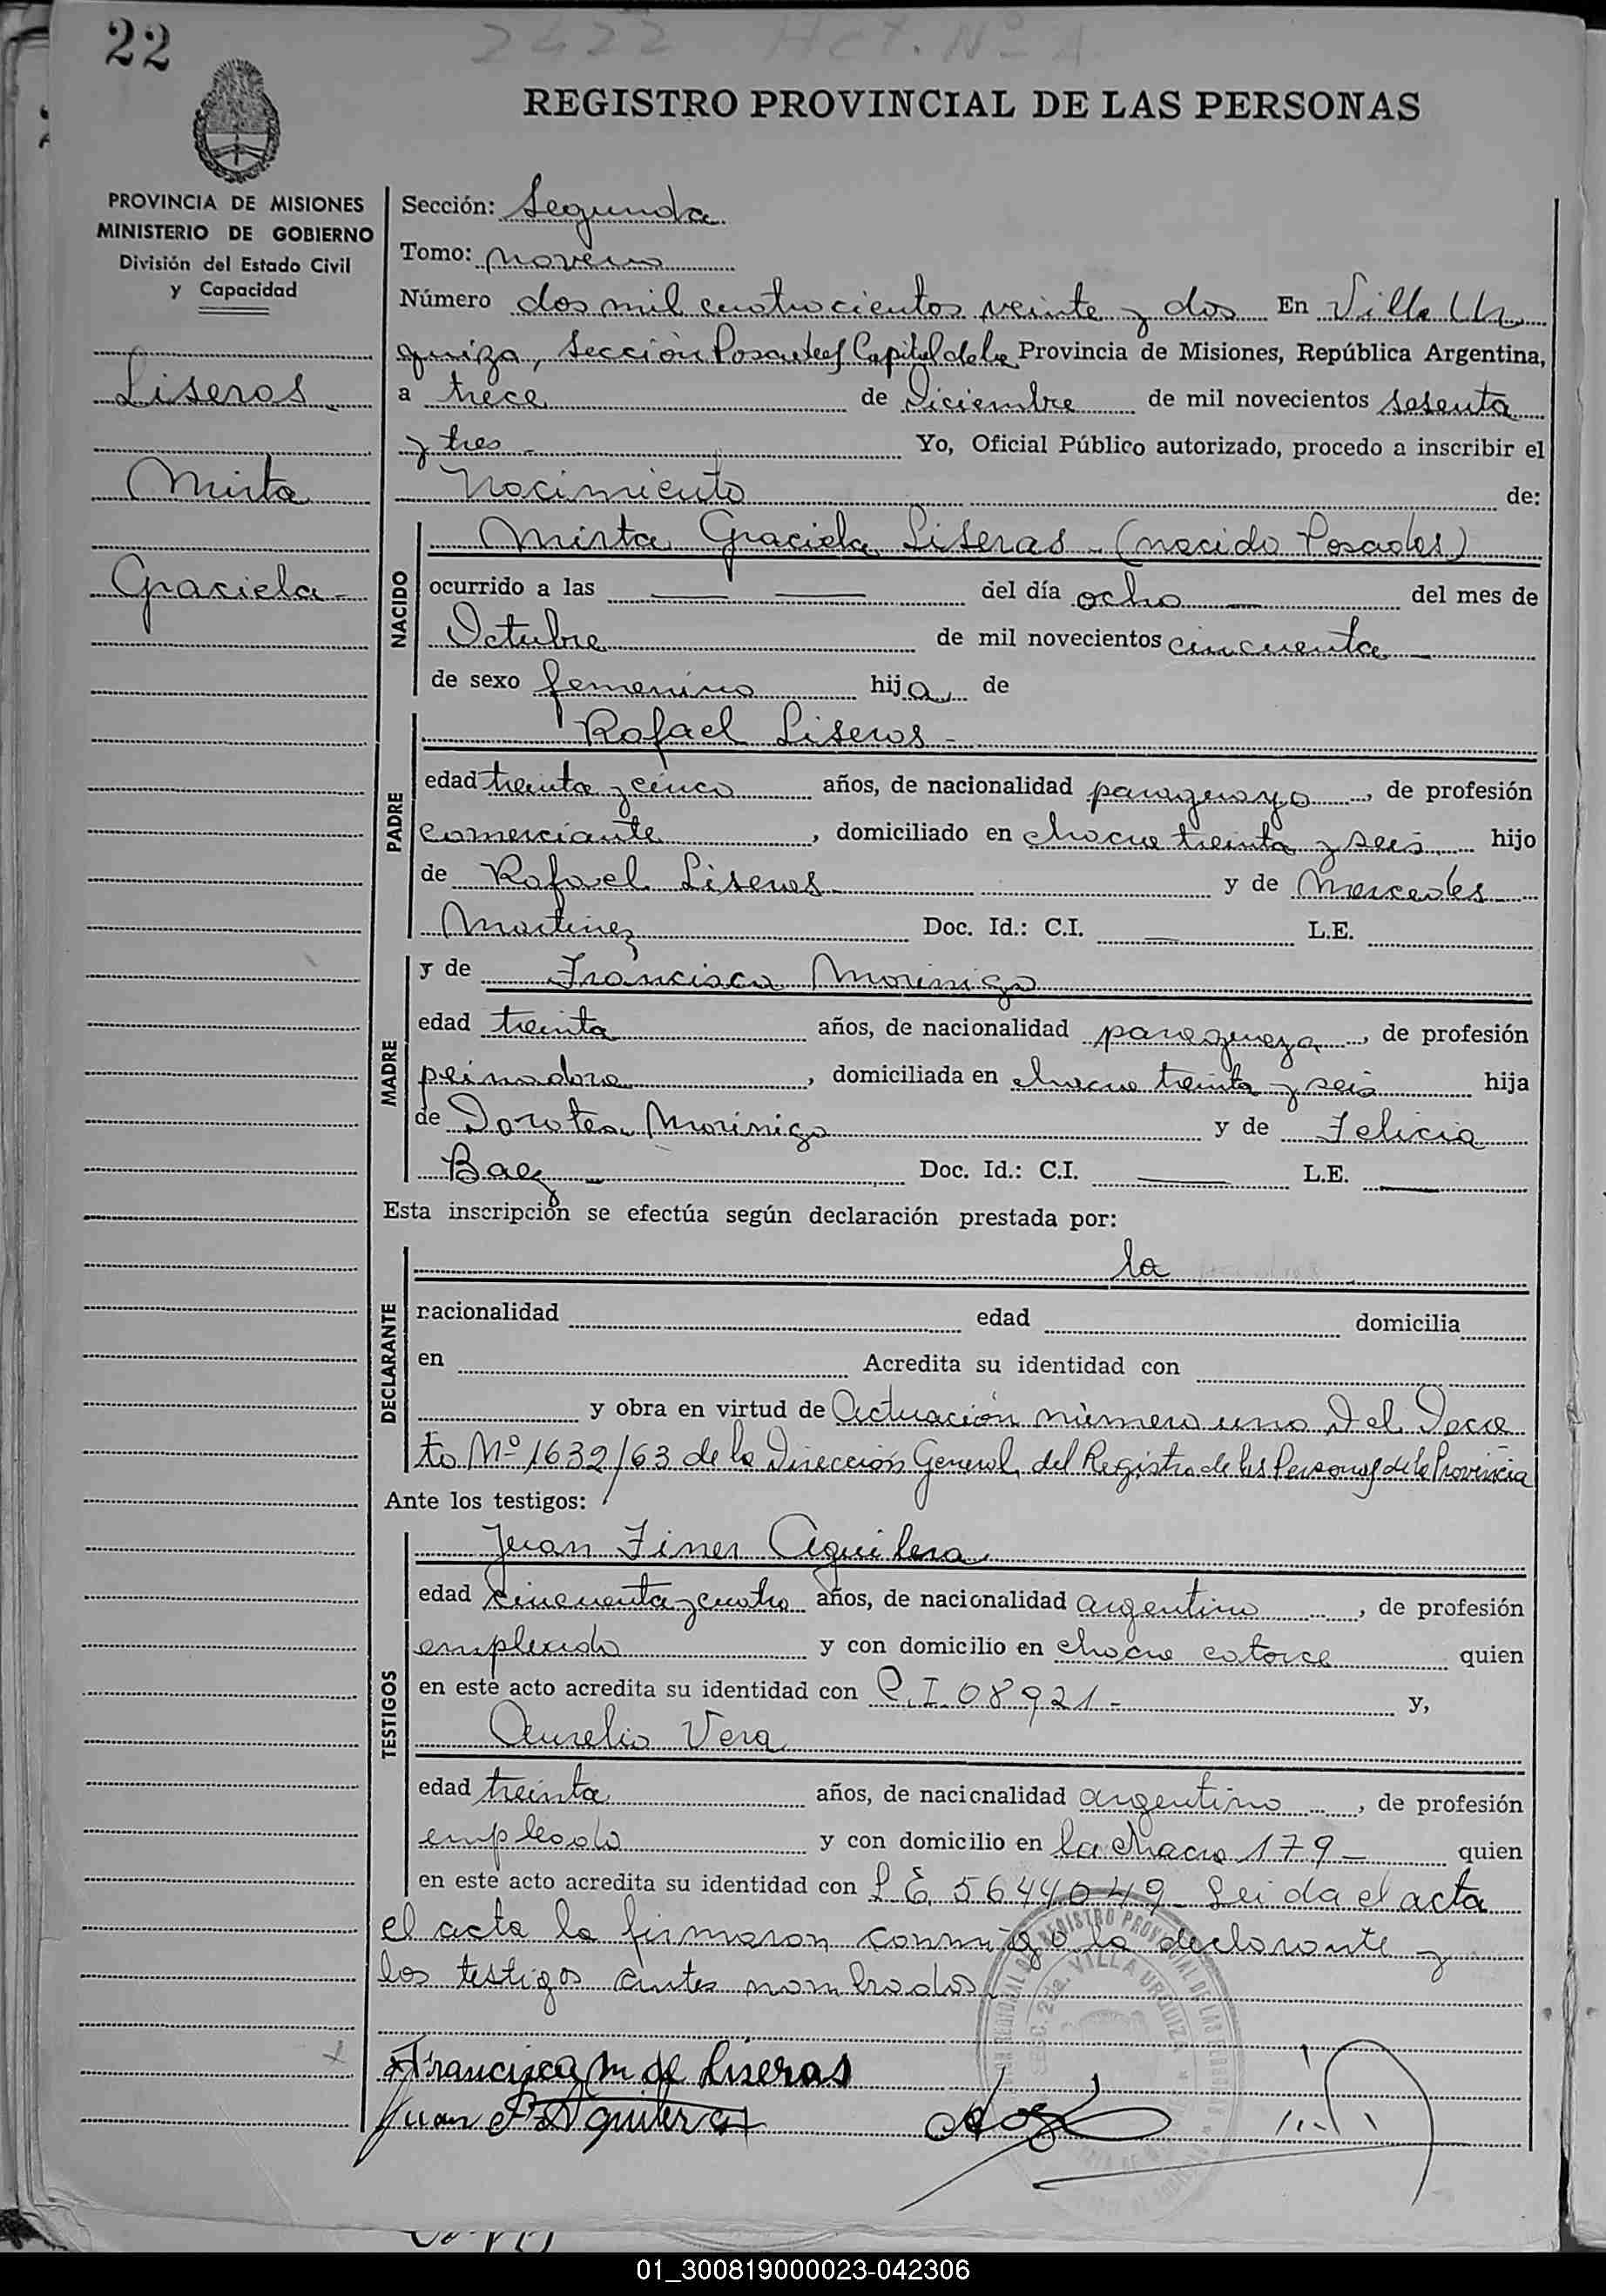 22
2422 Act. Nº 1
REGISTRO PROVINCIAL DE LAS PERSONAS
PROVINCIA DE MISIONES
MINISTERIO DE GOBIERNO
División del Estado Civil
y Capacidad
Liseras
Mirta
Graciela -
Sección: Segunda
Tomo: noveno
Número dos mil cuatrocientos veinte y dos En Villa Ur
quiza, Sección Posadas Capital de la Provincia de Misiones, República Argentina,
a trece de Diciembre de mil novecientos sesenta
y tres - Yo, Oficial Público autorizado, procedo a inscribir el
Nacimiento de:
NACIDO
Mirta Graciela Liseras - (nacido Posadas)
ocurrido a las — — del día ocho — del mes de
Octubre de mil novecientos cincuenta —
de sexo femenino hija de
PADRE
Rafael Liseras -
edad treinta y cinco años, de nacionalidad paraguayo, de profesión
comerciante, domiciliado en chacra treinta y seis hijo
de Rafael Liseras - y de Mercedes
Martinez Doc. Id.: C.I. — L.E.
MADRE
y de Francisca Morinigo
edad treinta años, de nacionalidad paraguaya, de profesión
peinadora, domiciliada en chacra treinta y seis hija
de Dorotea Morinigo y de Felicia
Baez - Doc. Id.: C.I. — L.E. —
Esta inscripción se efectúa según declaración prestada por:
DECLARANTE
la
nacionalidad edad domicilia
en Acredita su identidad con
y obra en virtud de Actuación número uno Del Decre
to Nº 1632/63 de la Dirección General del Registro de las Personas de la Provincia
Ante los testigos:
TESTIGOS
Juan Finer Aguilera
edad cincuenta y cuatro años, de nacionalidad argentino, de profesión
empleado y con domicilio en chacra catorce quien
en este acto acredita su identidad con C.I. 08921 - y,
Aurelio Vera
edad treinta años, de nacionalidad argentino, de profesión
empleado y con domicilio en la chacra 179 - quien
en este acto acredita su identidad con L E 5644049 - Leida el acta
el acta la firmaron conmigo la declarante y
los testigos antes nombrados.
REGISTRO PROVINCIAL DE LAS PERSONAS
SEC. 2da. VILLA URQUIZA
Francisca M de Liseras
Juan F Aguilera
01_300819000023-042306